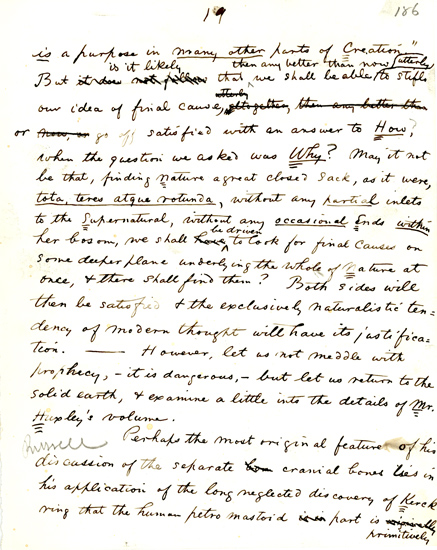 19 186
is a purpose in many other parts of Creation"
is it likely then any better than now utterly
But it does not follow that we shall be able to stifle
utterly
our idea of final cause, altogether, then any better than
or now, or go off satisfied with an answer to How?,
when the question we asked was Why? May it not
be that, finding nature a great closed sack, as it were,
tota, teres atque rotunda, without any partial inlets
to the Supernatural, without any occasional Ends within
be driven
her bosom, we shall have to look for final causes on
some deeper plane underlying the whole of Nature at
once, & there shall find them? Both sides will
then be satisfied & the exclusively naturalistic ten-
dency of modern thought will have its justifica-
tion. —— However, let us not meddle with
prophecy, - it is dangerous, - but let us return to the
solid earth, & examine a little into the details of Mr.
Huxley's volume.
Russell Perhaps the most original feature of his
discussion of the separate cranial bones lies in
his application of the long neglected discovery of Kerck
ring that the human petro mastoid is in part is originally
primitively